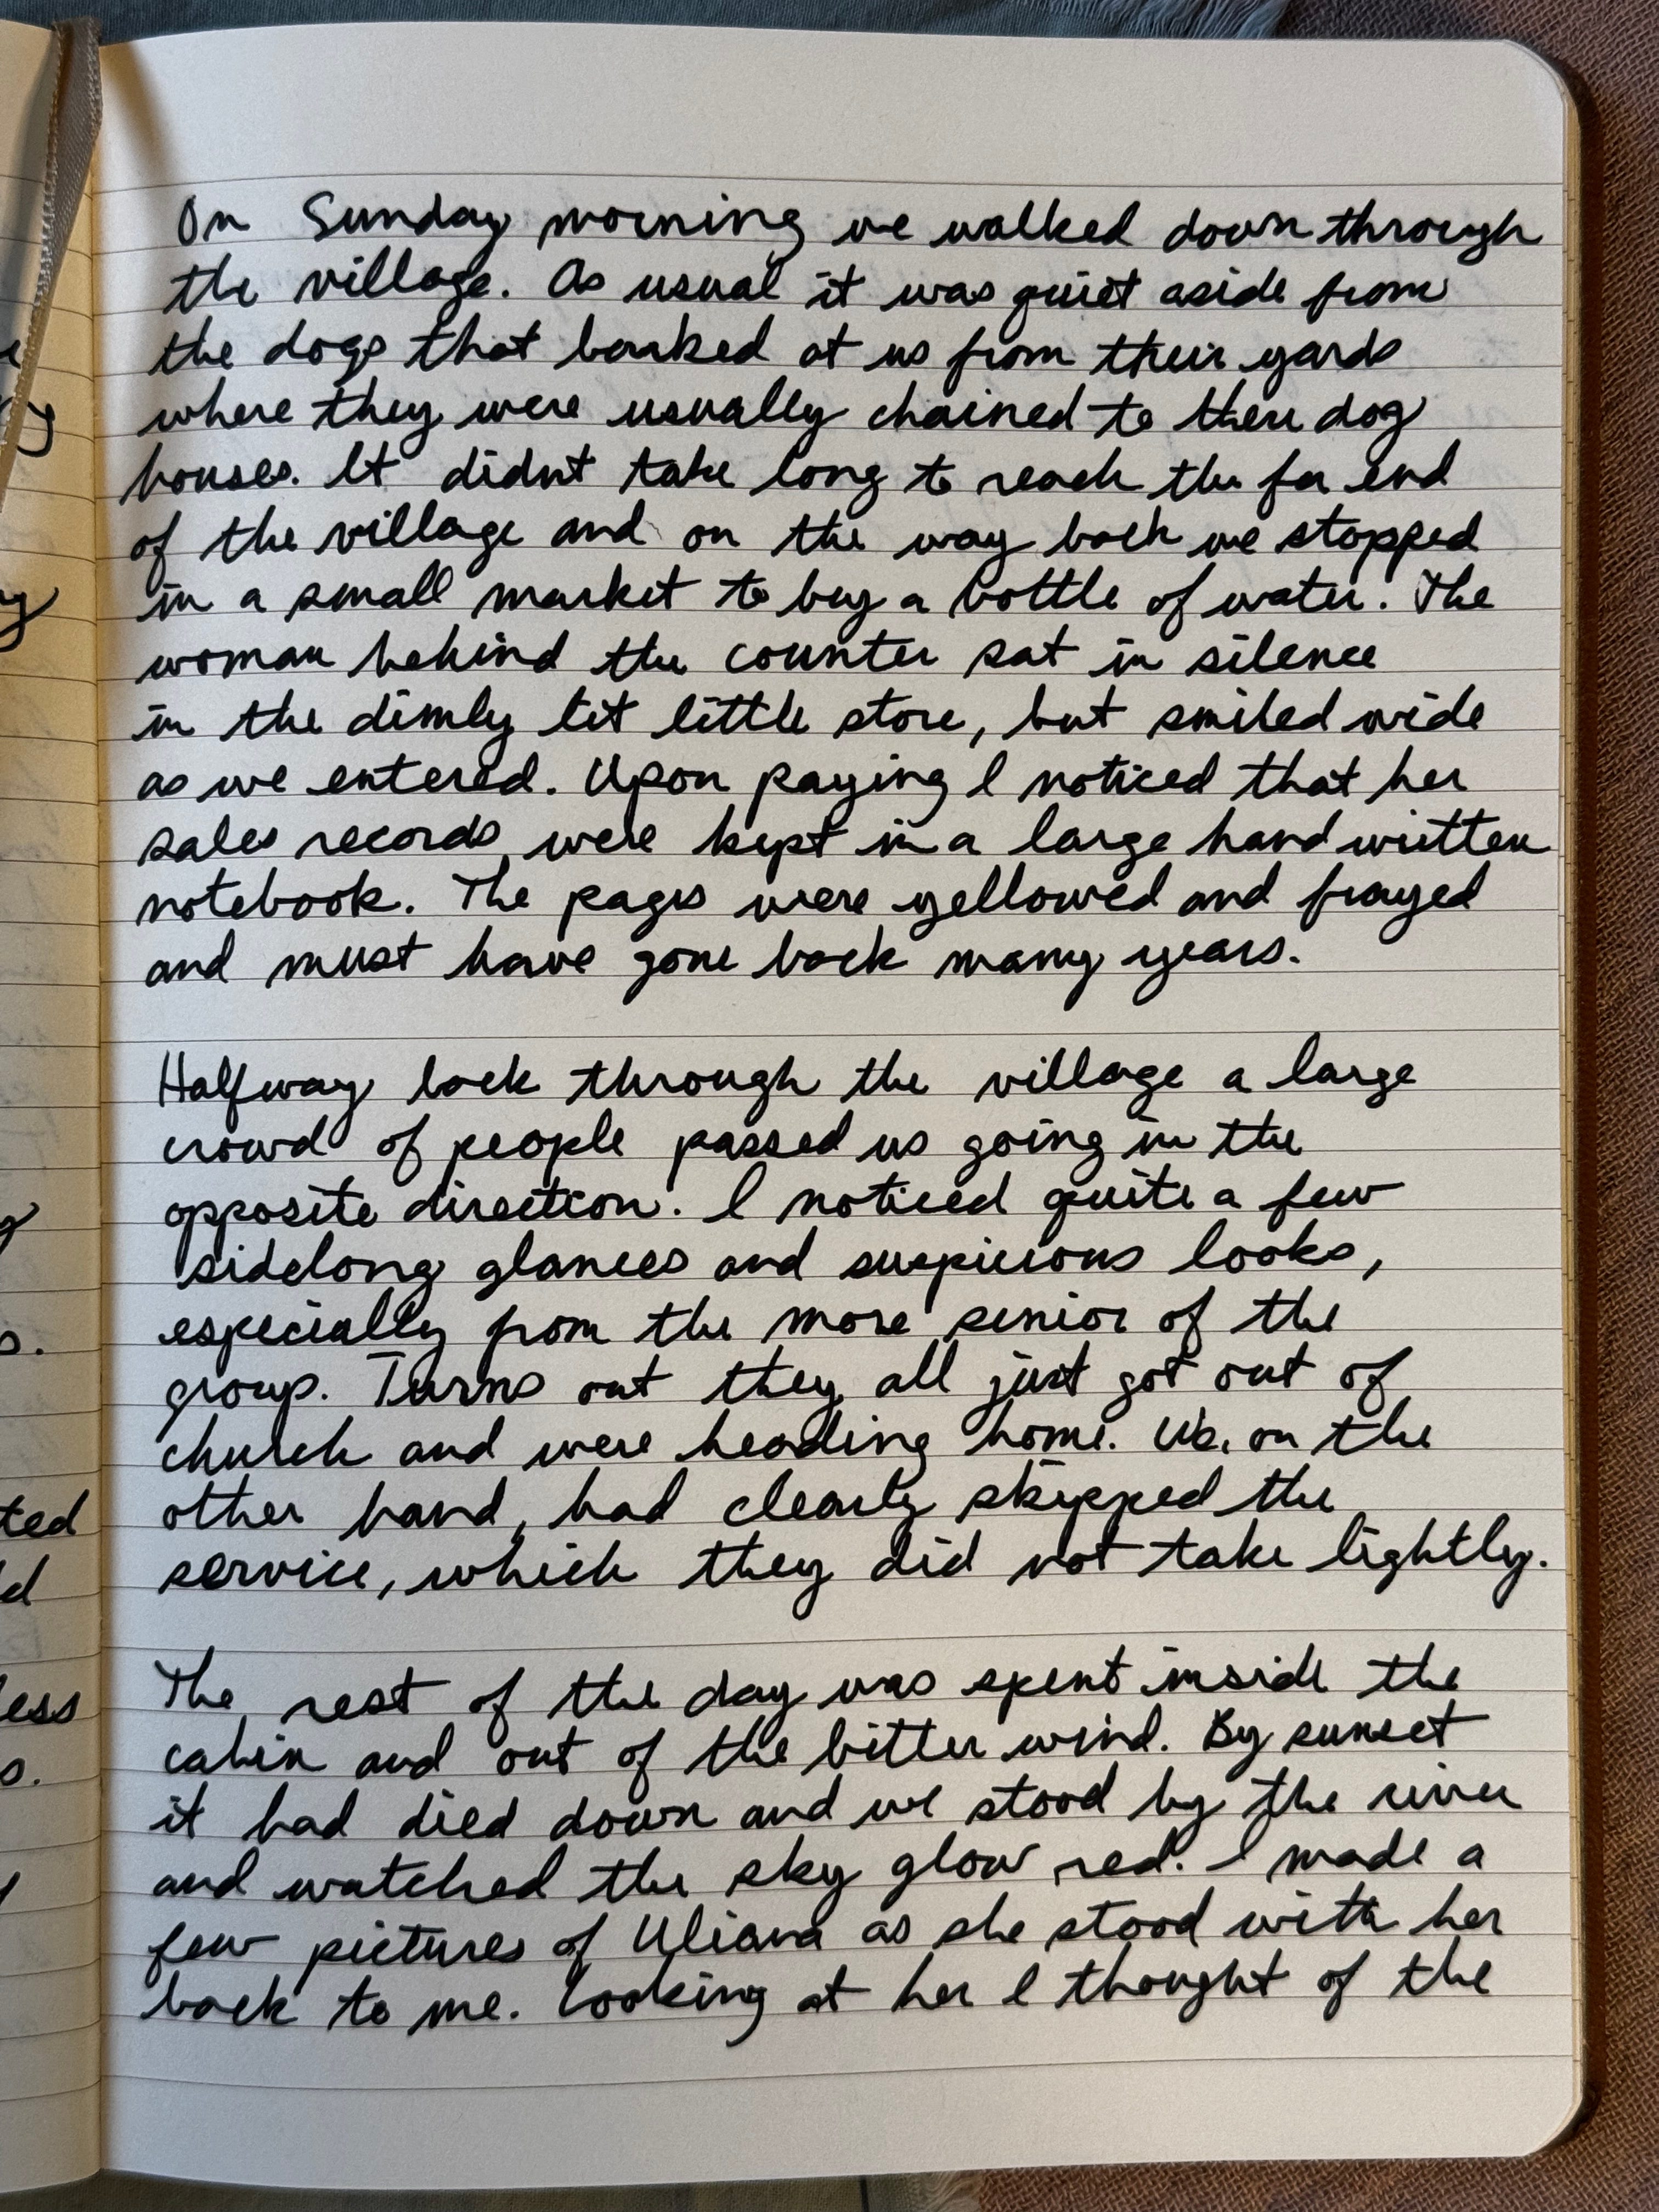 On Sunday morning we walked down through
the village. As usual it was quiet aside from
the dogs that barked at us from their yards
where they were usually chained to their dog
houses. It didnt take long to reach the far end
of the village and on the way back we stopped
in a small market to buy a bottle of water. The
woman behind the counter sat in silence
in the dimly lit little store, but smiled wide
as we entered. Upon paying I noticed that her
sales records were kept in a large handwritten
notebook. The pages were yellowed and frayed
and must have gone back many years.
Halfway back through the village a large
crowd of people passed us going in the
opposite direction. I noticed quite a few
sidelong glances and suspicious looks,
especially from the more senior of the
group. Turns out they all just got out of
church and were heading home. We, on the
other hand, had clearly skipped the
service, which they did not take lightly.
The rest of the day was spent inside the
cabin and out of the bitter wind. By sunset
it had died down and we stood by the river
and watched the sky glow red. I made a
few pictures of Uliana as she stood with her
back to me. Looking at her I thought of the